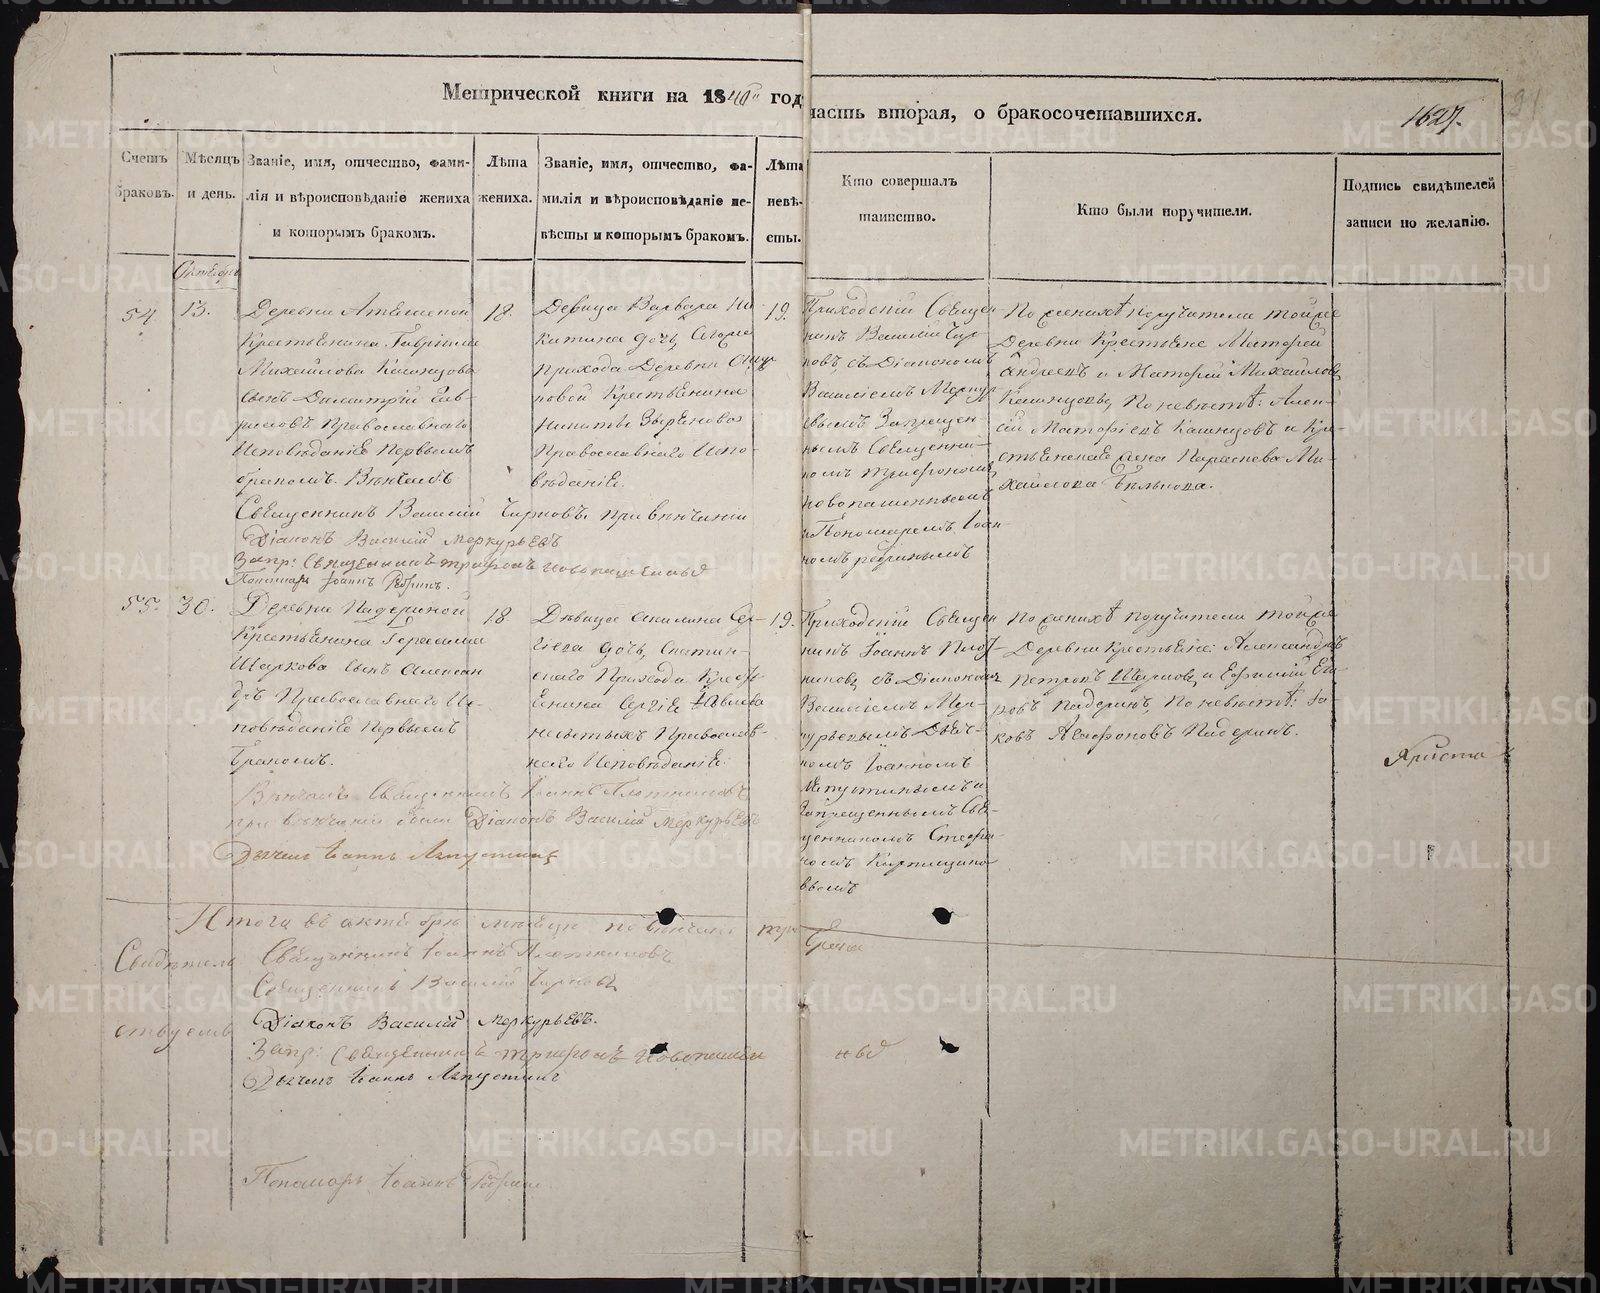 Метрической книги на 1840й год
часть вторая, о бракосочетавшихся.
1627.
91
Счетъ
браковъ.
Мѣсяцъ
и день.
Званіе, имя, отчество, фами-
лія и вѣроисповѣданіе жениха
и которымъ бракомъ.
Лѣта
жениха.
Званіе, имя, отчество, фа-
милія и вѣроисповѣданіе не-
вѣсты и которымъ бракомъ.
Лѣта
невѣ-
сты.
Кто совершалъ
таинство.
Кто были поручители.
Подпись свидѣтелей
записи по желанію.
Октябрь
54
13.
Деревни
Крестьянина Гавріила
Михайлова Казанцова
сынъ Димитрій Гав-
риловъ Православнаго
Исповѣданіе Первымъ
бракомъ. Вѣнчалъ
Священникъ Василій Чирковъ. При вѣнчаніи
Діаконъ Василій Меркурьевъ
Запр: Священникъ Трифонъ Новопашенный
Пономарь Іоаннъ
18.
Девица Варвара Ни-
китина дочь
прихода Деревни
Крестьянина
Никиты
Православнаго Испо-
вѣданіе.
19.
Приходскій Священ
никъ Василій Чир
ковъ, съ Діакономъ
Василіемъ Меркур-
евымъ Запрещен
нымъ Священни-
комъ Трифономъ
Новопашеннымъ
и Пономаремъ Іоан-
номъ
По женихѣ поручители той же
Деревни Крестьяне Матфей
Андреевъ и Матфей Михайловъ
Казанцовы, По невѣстѣ: Алек-
сѣй Матфѣевъ Казанцовъ и Кре-
стьянская жена Параскева Ми-
хайлова
55.
30.
Деревни Падериной
Крестьянина Герасима
Шаркова сынъ Алексан
дръ Православнаго Ис-
повѣданіе Первымъ
бракомъ.
Вѣнчалъ Священникъ Іоаннъ Плотниковъ
при вѣнчаніи были Діаконъ Василій Меркурьевъ
Дьячекъ Іоаннъ Лепустинъ
18
Дѣвица Акилина Сер-
гіева дочь,
скаго Прихода Крест-
янина Сергіе
Православ-
наго Исповѣданіе.
19.
Приходскій Священ
никъ Іоаннъ Плот-
никовъ съ Діакономъ
Василіемъ Мер-
курьевымъ Дьяч-
комъ Іоанномъ
Лепустинымъ и
Запрещеннымъ Свя-
щенникомъ Стефа-
номъ
вымъ
По женихѣ поручители той же
Деревни Крестьяне: Александръ
Петровъ Шарковъ, и Ефимій Ега-
ровъ Падеринъ, По невѣстѣ: Іа-
ковъ Агафоновъ Падеринъ.
Итога въ октябрѣ мѣсяце повѣнчано три
брака
Свидѣтель
ствуемъ
Священникъ Іоаннъ Плотниковъ
Священникъ Василій Чирковъ
Діаконъ Василій Меркурьевъ.
Запр: Священникъ Трифонъ Новопашен
ный
Дьячекъ Іоаннъ Лепустинъ
Пономарь Іоаннъ
METRIKI.GASO-URAL.RU